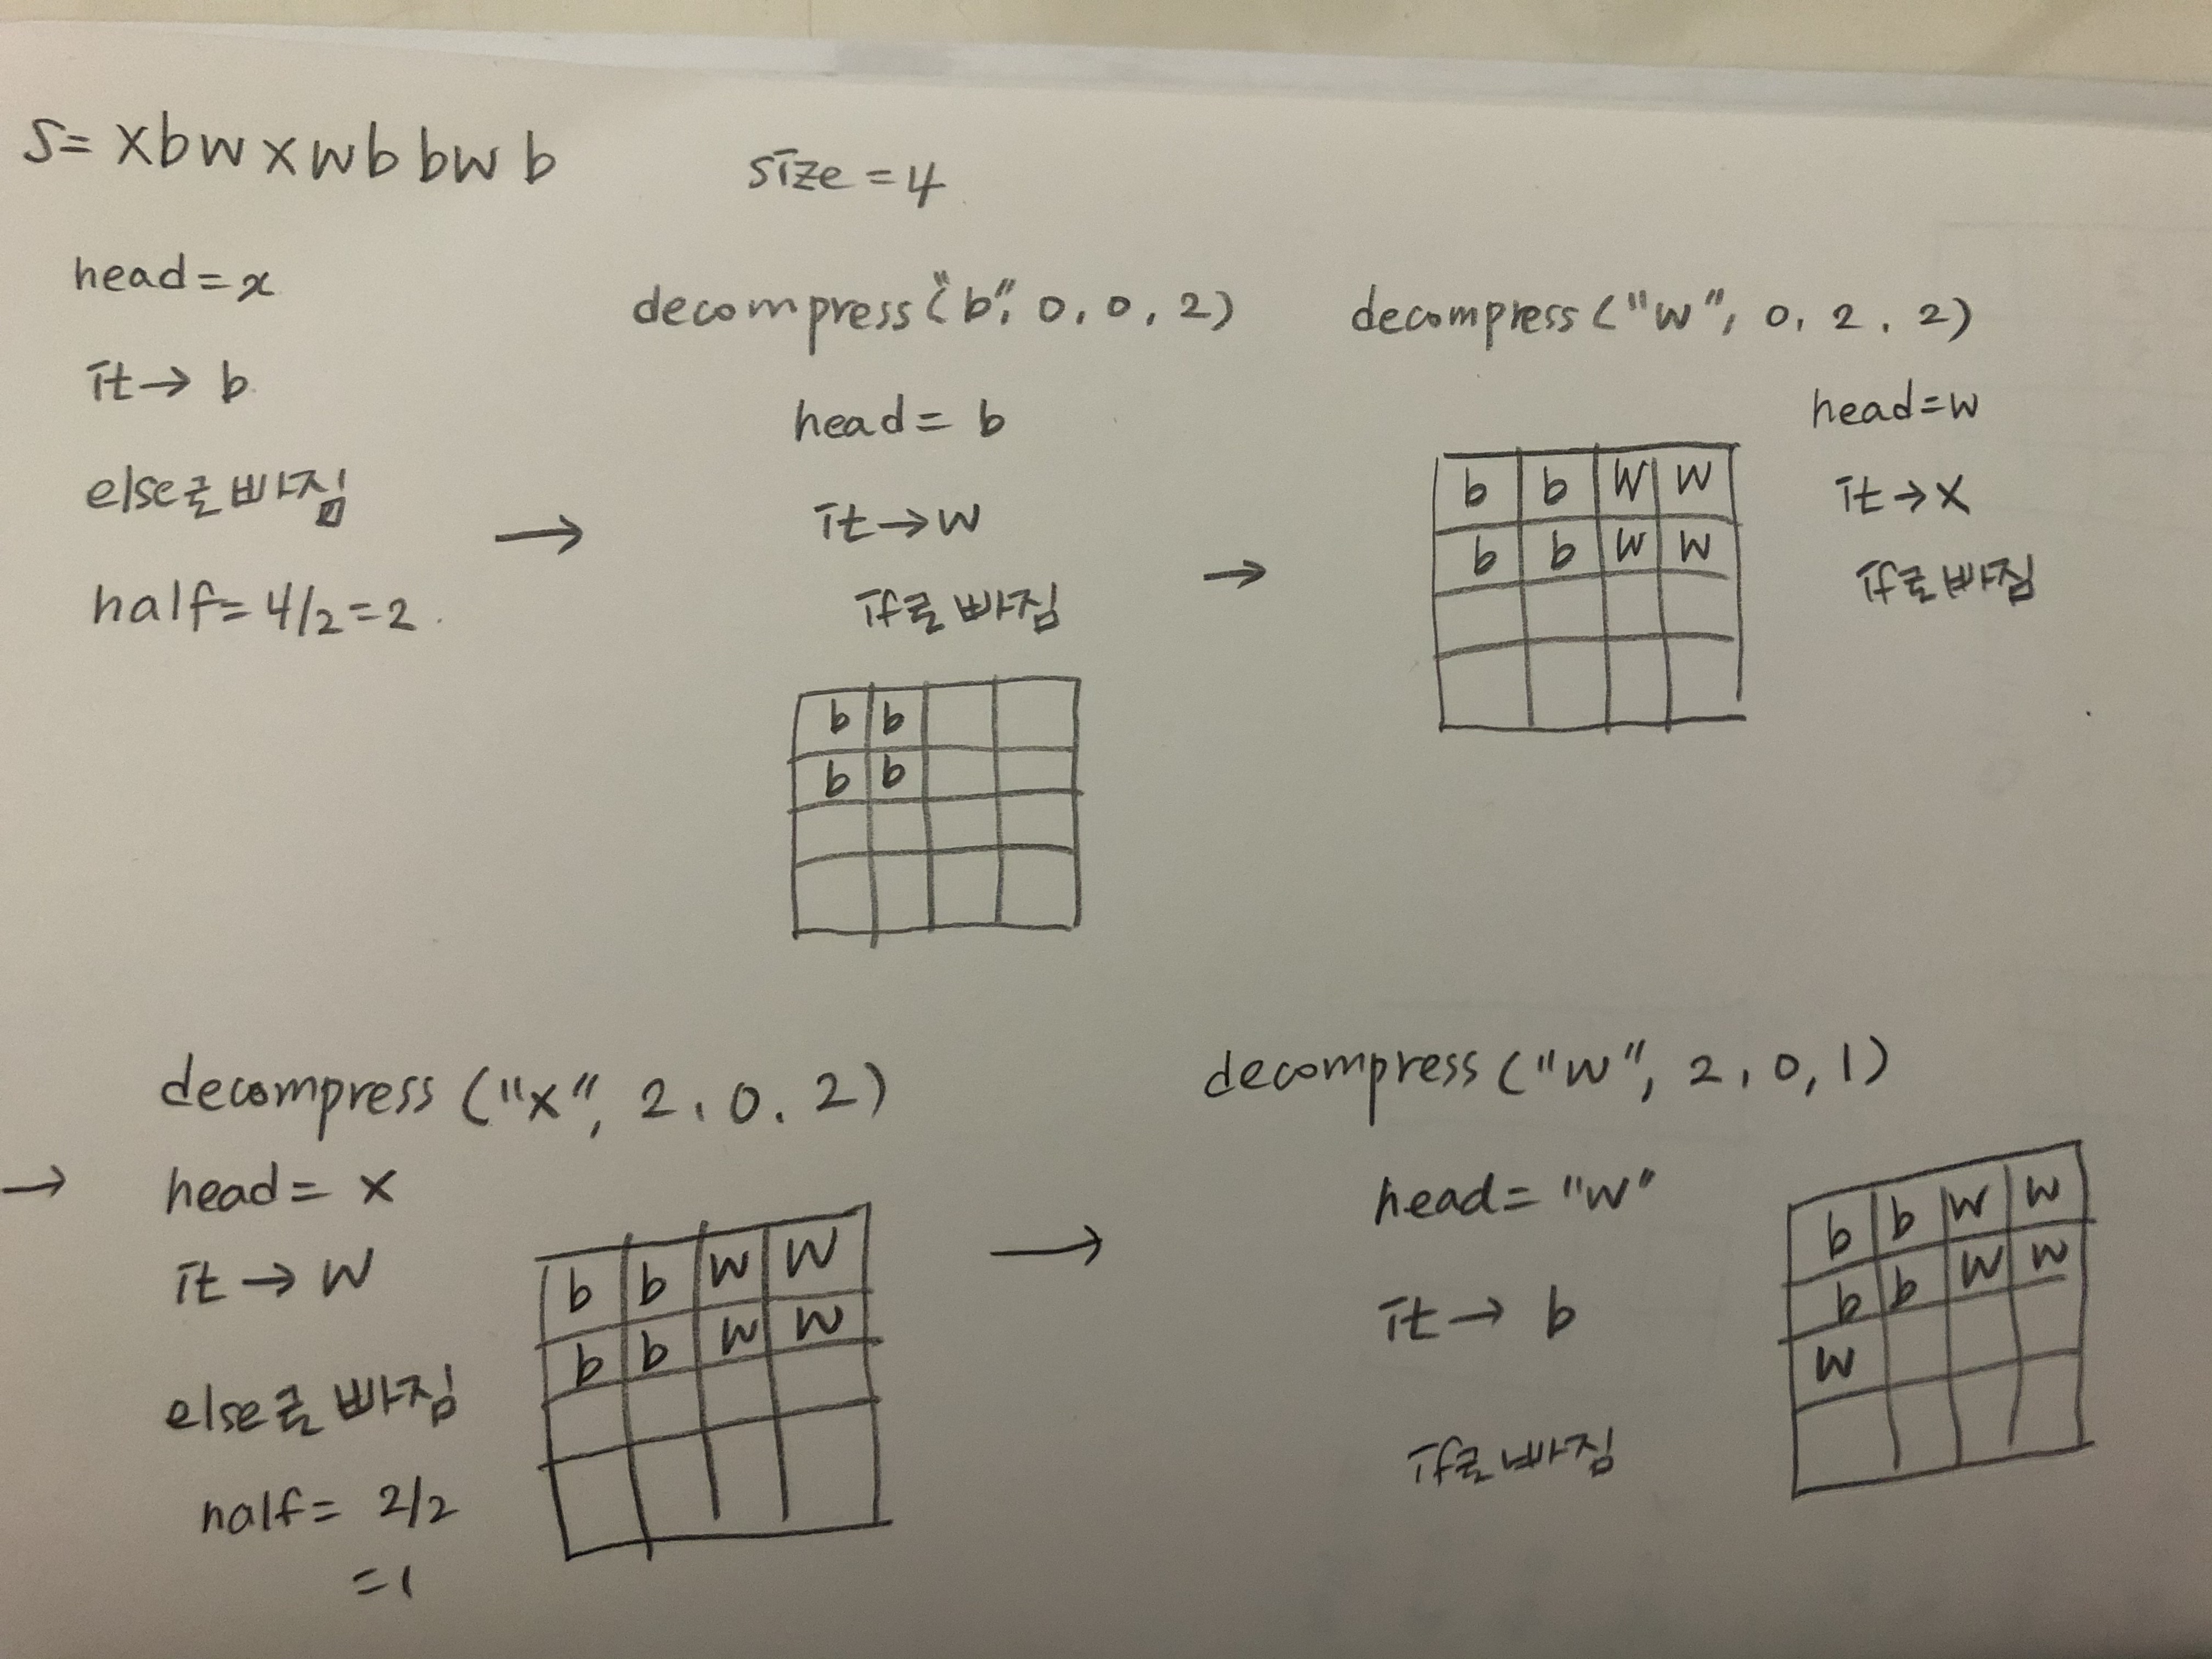 s= xbwxwbbwb
size=4
head=x
it→ b
else로 빠짐
half= 4/2=2.
→
decompress("b", 0, 0, 2)
head= b
it→w
if로 빠짐
b b
b b
→
decompress("w", 0, 2, 2)
head=w
it→x
if로 빠짐
b b w w
b b w w
→
decompress("x", 2, 0, 2)
head= x
it → w
else로 빠짐
half= 2/2
=1
b b w w
b b w w
→
decompress("w", 2, 0, 1)
head= "w"
it→ b
if로 빠짐
b b w w
b b w w
w